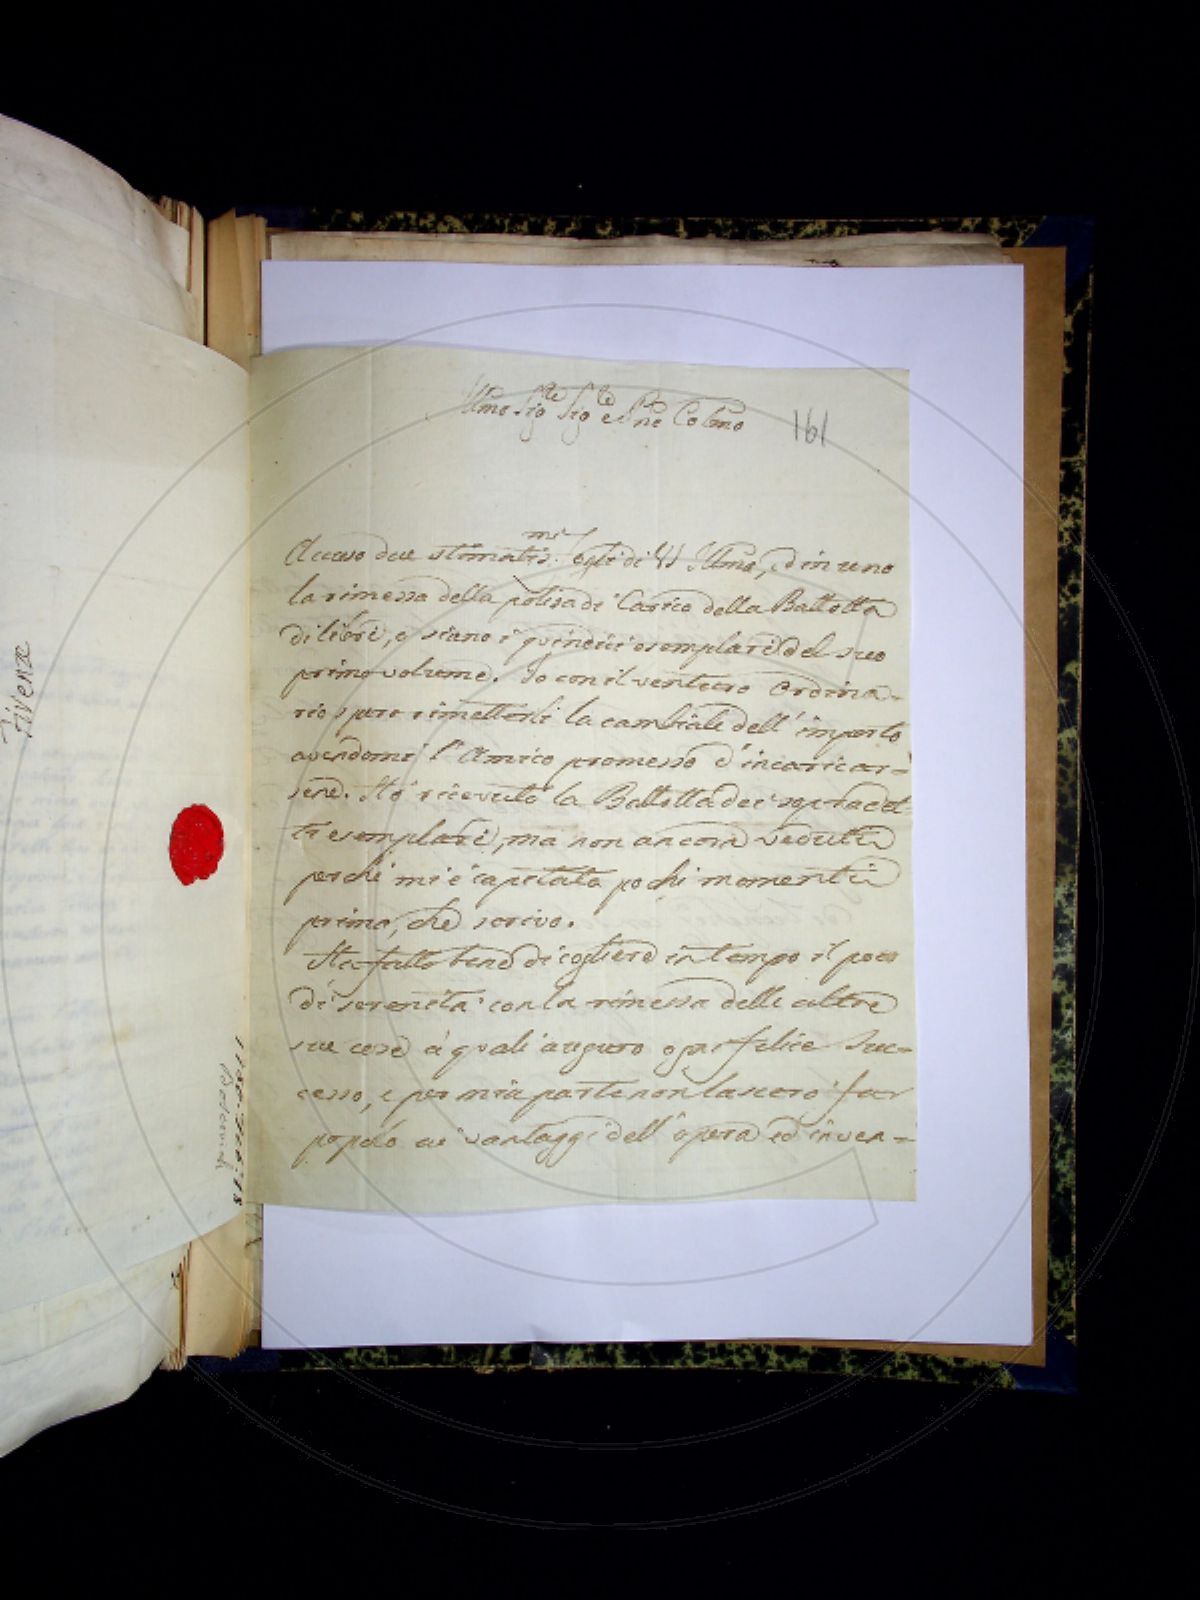 Illmo Sigre Sigre e Pne Colmo
161
Accuso due stimatis.mi fogli di VS Illma, ed in uno
la rimessa della polisa di Carico della Ballotta
di libri, o siano i quindici esemplari del suo
primo volume. Io con il venturo ordina-
rio spero rimetterli la cambiale dell' importo
avendomi l' Amico promesso d' incaricar-
sene. Hò ricevuto la Ballotta dei sopradet-
ti esemplari, ma non ancora veduti
perche mi è capitata pochi momenti
prima, che scrivo.
Ha fatto bene di cogliere in tempo il poco
di serenità con la rimessa delle altre
sue cose à quali auguro ogni felice suc-
cesso, e per mia parte non lascerò far
popolo ai vantaggi dell' opera ed inven-
Firenze
Palermo